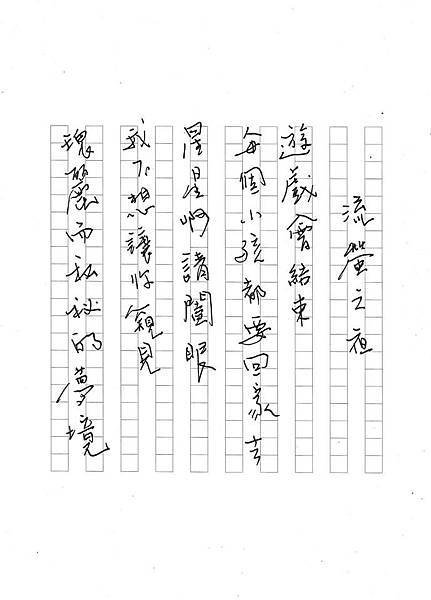 流螢之夜
遊戲會結束
每個小孩都要回家去
星星啊請闔眼
我不想讓你窺見
瑰麗而私秘的夢境